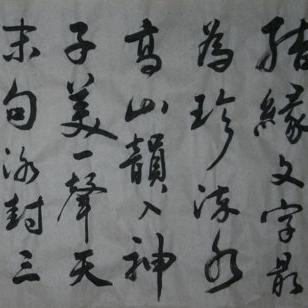 結緣文字最
為珍流水
高山韻入神
子美一聲天
末句泳封三